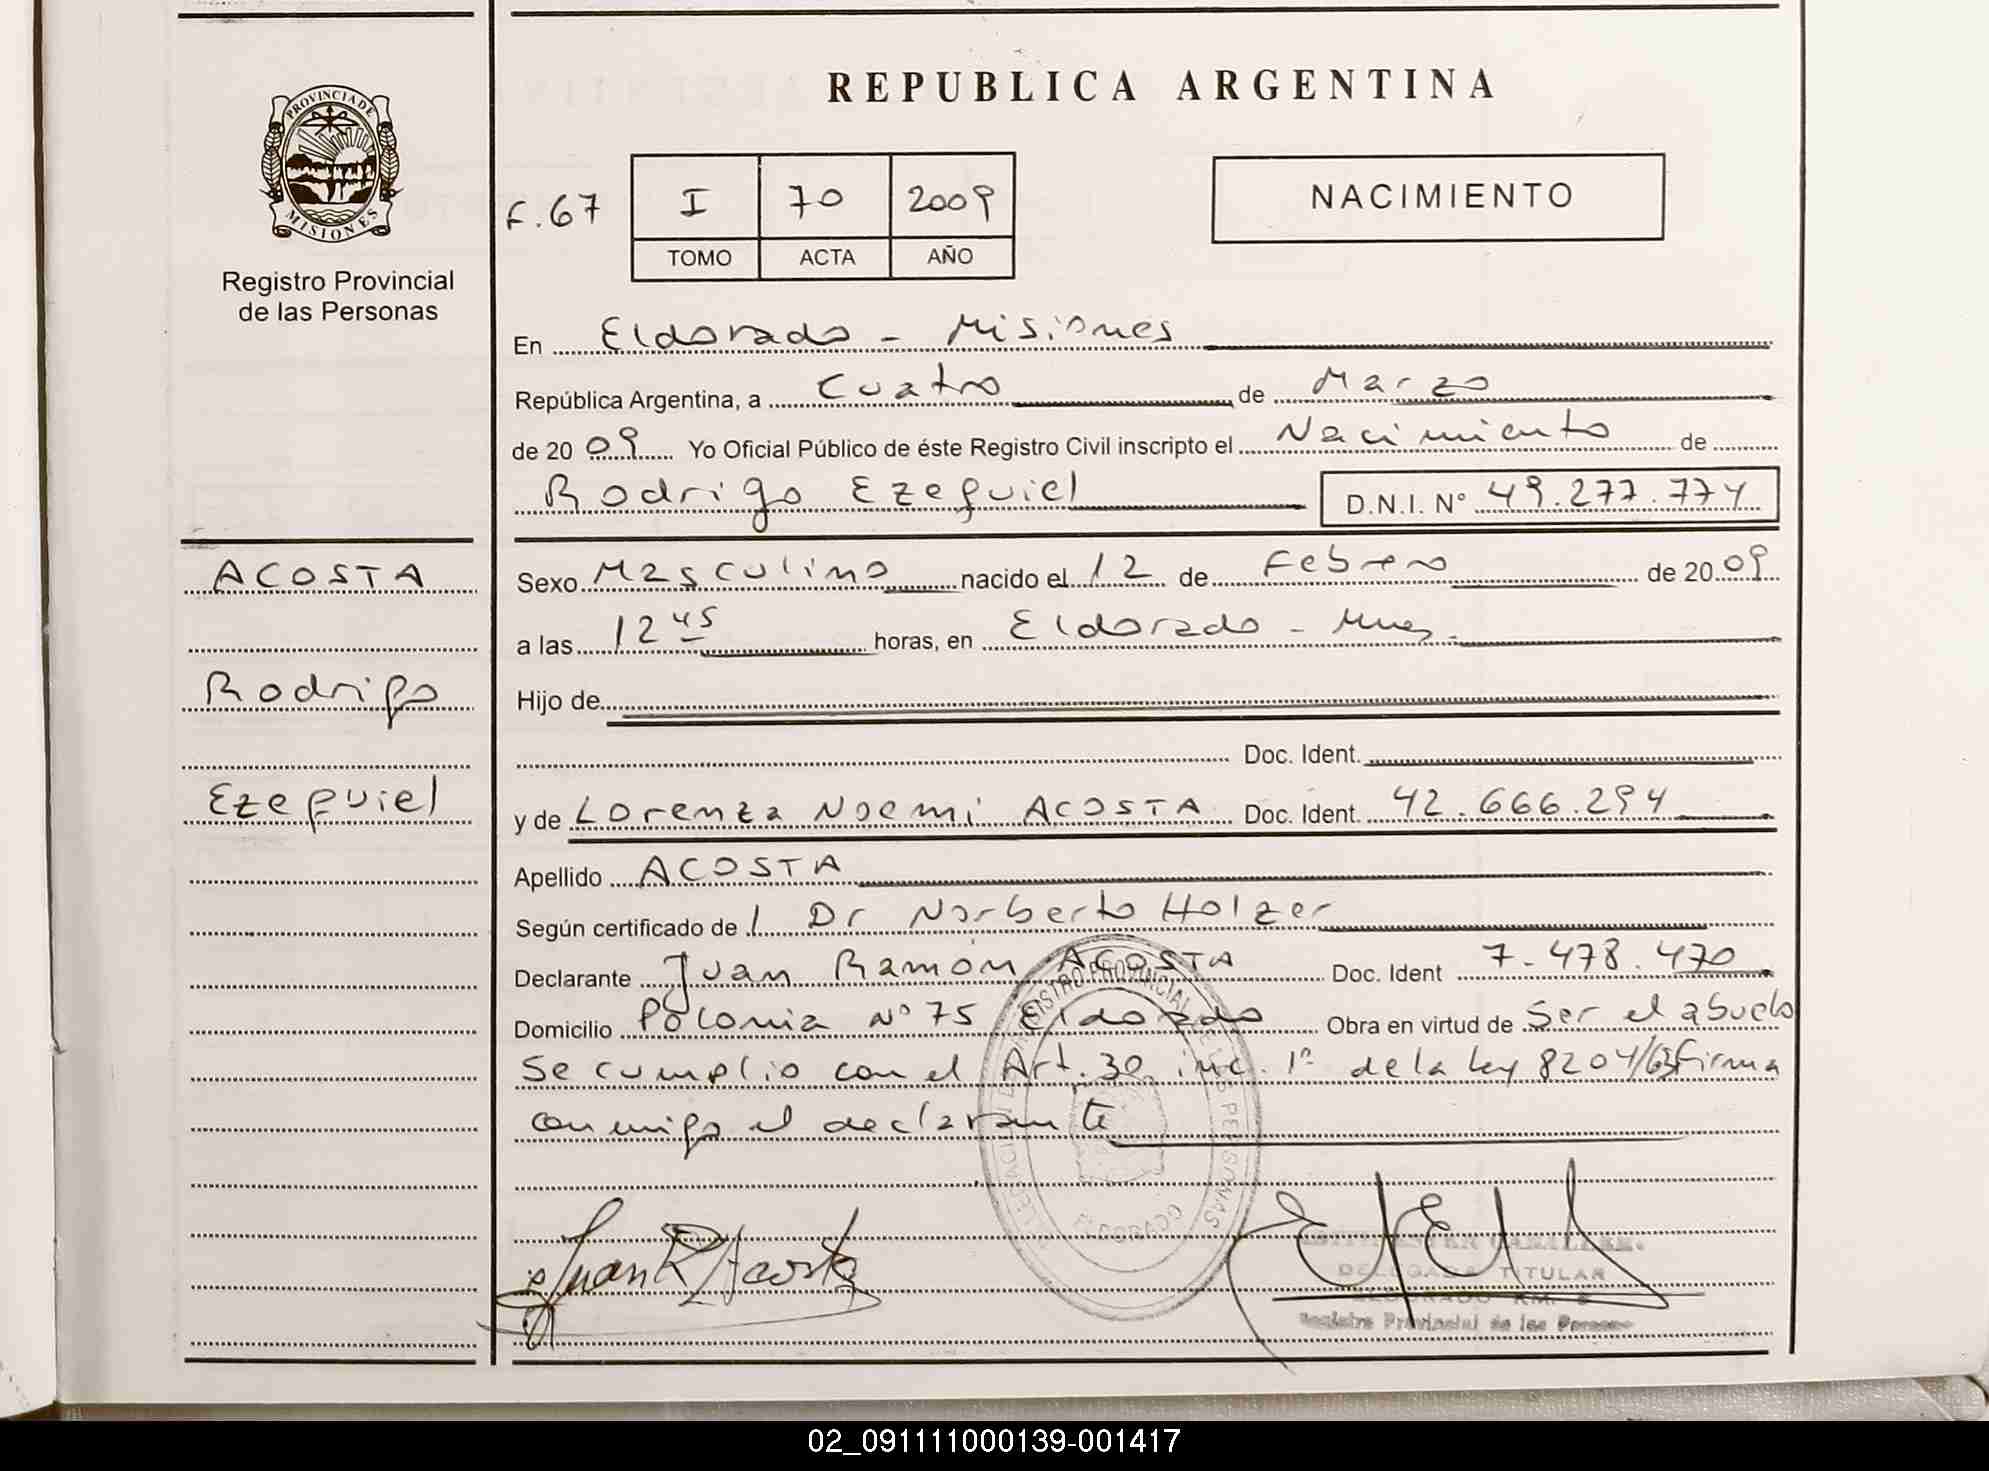 REPUBLICA ARGENTINA
PROVINCIA DE MISIONES
Registro Provincial
de las Personas
F. 67
I 70 2009
TOMO ACTA AÑO
NACIMIENTO
En Eldorado - Misiones
República Argentina, a Cuatro de Marzo
de 2009 Yo Oficial Público de éste Registro Civil inscripto el Nacimiento de
Rodrigo Ezequiel D.N.I. Nº 49.277.774
ACOSTA
Rodrigo
Ezequiel
Sexo Masculino nacido el 12 de Febrero de 2009
a las 12 45 horas, en Eldorado - Mnes.
Hijo de
Doc. Ident.
y de Lorenza Noemi ACOSTA Doc. Ident. 42.666.294
Apellido ACOSTA
Según certificado de l Dr Norberto Holzer
Declarante Juan Ramón ACOSTA Doc. Ident 7.478.470
Domicilio Polonia Nº 75 Eldorado Obra en virtud de Ser el abuelo
Se cumplio con el Art. 30 inc. 1º de la Ley 8204/63 Firma
conmigo el declarante
REGISTRO PROVINCIAL DE LAS PERSONAS
ELDORADO
Juan R Acosta
DELEGADA TITULAR
ELDORADO KM.
Registro Provincial de las Personas
02_091111000139-001417